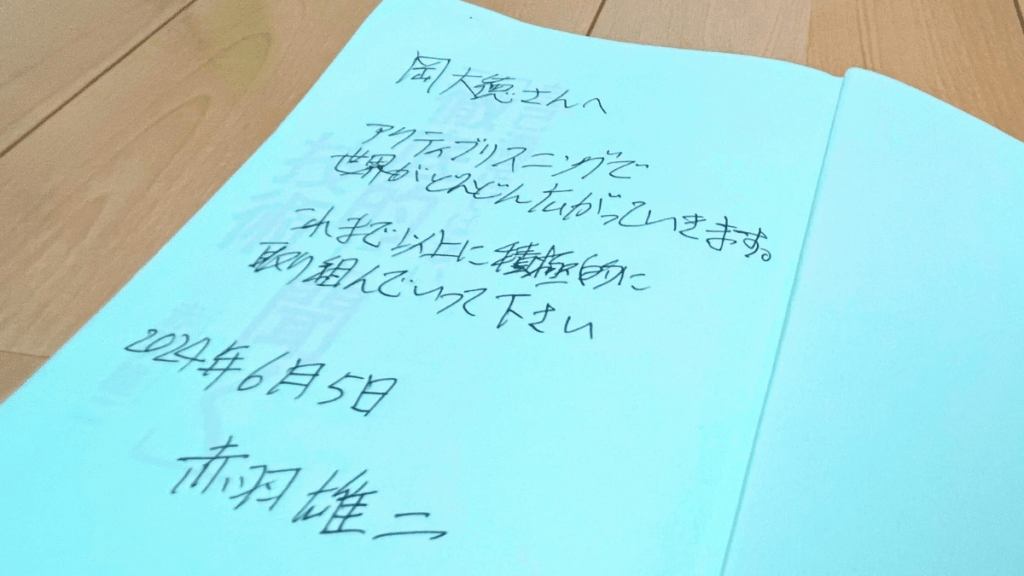 岡大徳さんへ
アクティブリスニングで
世界がどんどん広がっていきます。
これまで以上に積極的に
取り組んでいって下さい
2024年6月5日
赤羽雄二